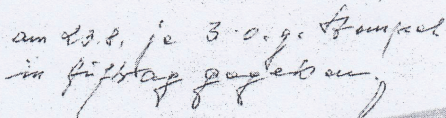 am 23.8. je 3 o.g. Stempel
in Auftrag gegeben.